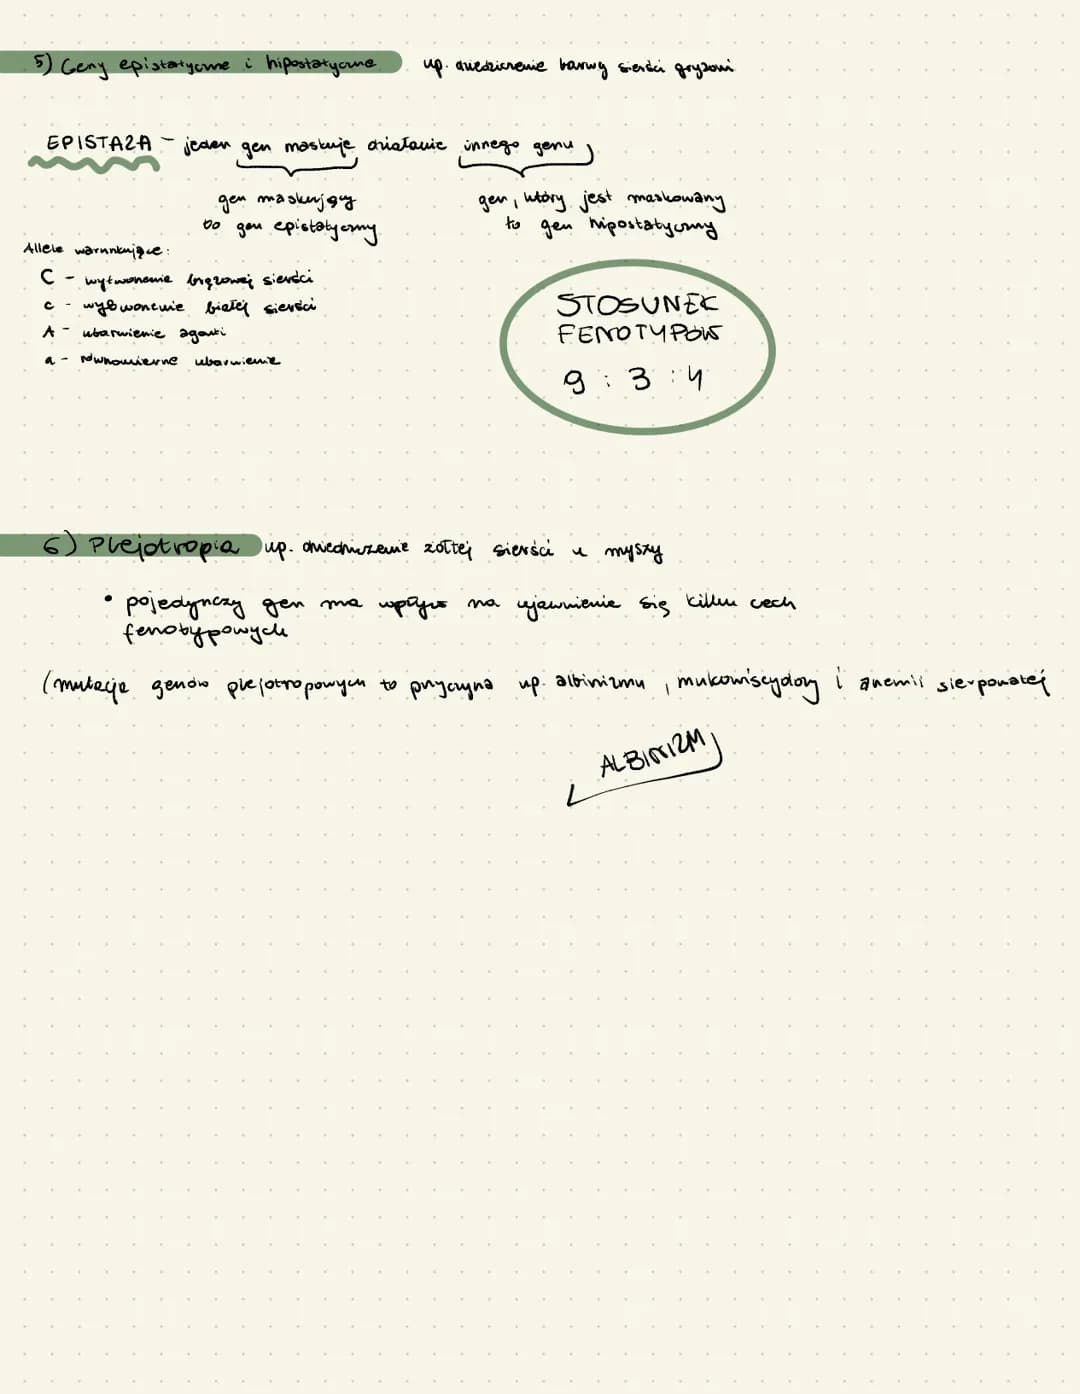 5) Geny epistatyczne i hipostatyczne np. dziedziczenie barwy sierści gryzoni
EPISTAZA - jeden gen maskuje działanie innego genu
gen maskujący
to gen epistatyczny
gen, który jest maskowany
to gen hipostatyczny
Allele warunkujące:
C - wytworzenie brązowej sierści
c - wytworzenie białej sierści
A - ubarwienie agouti
a - równomierne ubarwienie
STOSUNEK
FENOTYPÓW
9 : 3 : 4
6) Plejotropia np. dziedziczenie żółtej sierści u myszy
• pojedynczy gen ma wpływ na ujawnienie się kilku cech
fenotypowych
(mutacje genów plejotropowych to przyczyna np. albinizmu, mukowiscydozy i anemii sierpowatej
ALBINIZM